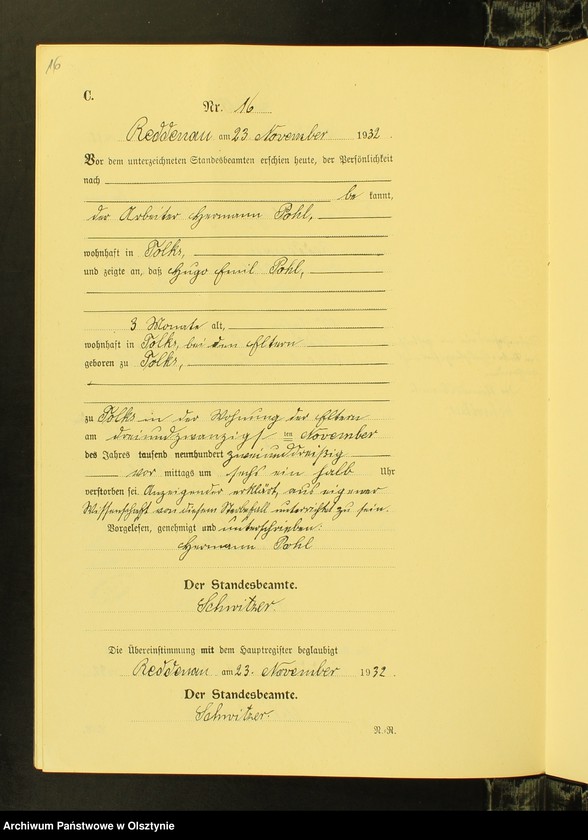 16
C.
Nr. 16
Reddenau am 23. November 1932.
Vor dem unterzeichneten Standesbeamten erschien heute, der Persönlichkeit
nach
be kannt,
der Arbeiter Hermann Pohl,
wohnhaft in Tolks,
und zeigte an, daß Hugo Emil Pohl,
3 Monate alt,
wohnhaft in Tolks, bei den Eltern
geboren zu Tolks,
zu Tolks in der Wohnung der Eltern
am dreiundzwanzigsten November
des Jahres tausend neunhundert zweiunddreißig
vor mittags um sechs ein halb Uhr
verstorben sei. Anzeigender erklärt, aus eigener
Wissenschaft von diesem Sterbefall unterrichtet zu sein.
Vorgelesen, genehmigt und unterschrieben:
Hermann Pohl
Der Standesbeamte.
Schwitzer.
Die Übereinstimmung mit dem Hauptregister beglaubigt
Reddenau am 23. November 1932.
Der Standesbeamte.
Schwitzer.
N.-R.
Archiwum Państwowe w Olsztynie